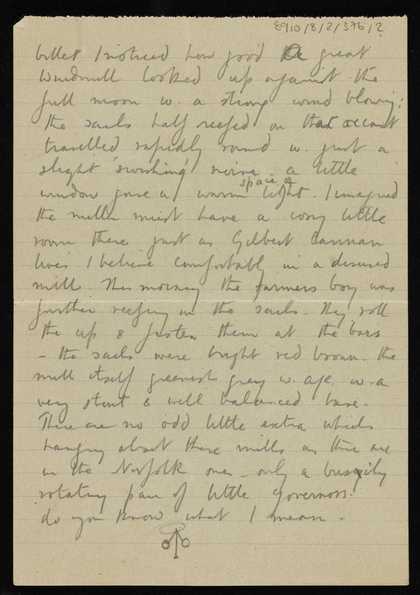 8910/8/2/376/2
billet I noticed how good a great
windmill looked up against the
full moon w. a strong wind blowing:
the sails half reefed on that account
travelled rapidly round w. just a
slight 'swishing' noise. a little
window gave a warm space of light. I imagined
the miller must have a cosy little
room there just as Gilbert Cannan
lives I believe comfortably in a disused
mill. This morning the farmers boy was
further reefing in the sails. They roll
the up & fasten them at the bars
– the sails were bright red brown. the
mill itself greenish grey w. age, w. a
very stout & well balanced base.
There are no odd little extra wheels
hanging about these mills as there are
in the Norfolk ones – only a busily
rotating pair of little governors.
do you know what I mean –